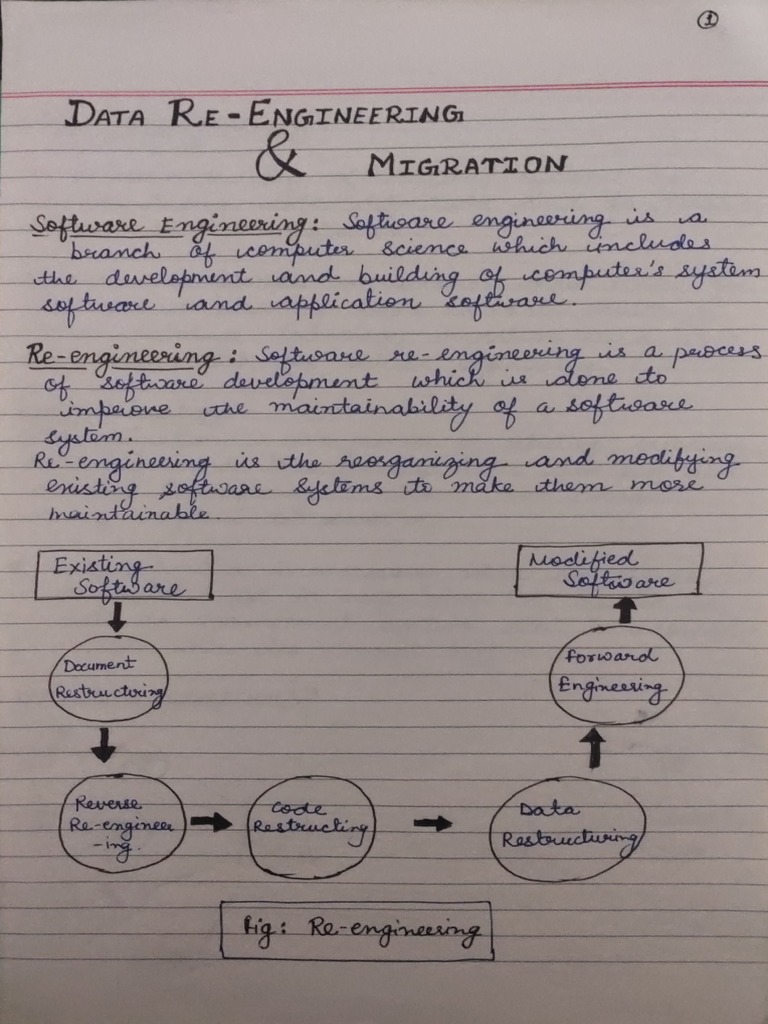 1
DATA RE-ENGINEERING
& MIGRATION
Software Engineering: Software engineering is a
branch of computer science which includes
the development and building of computer's system
software and application software.
Re-engineering: Software re-engineering is a process
of software development which is done to
improve the maintainability of a software
system.
Re-engineering is the reorganizing and modifying
existing software systems to make them more
maintainable.
Existing
Software
Document
Restructuring
Reverse
Re-engineer
-ing.
Code
Restructing
Data
Restructuring
Forward
Engineering
Modified
Software
Fig: Re-engineering